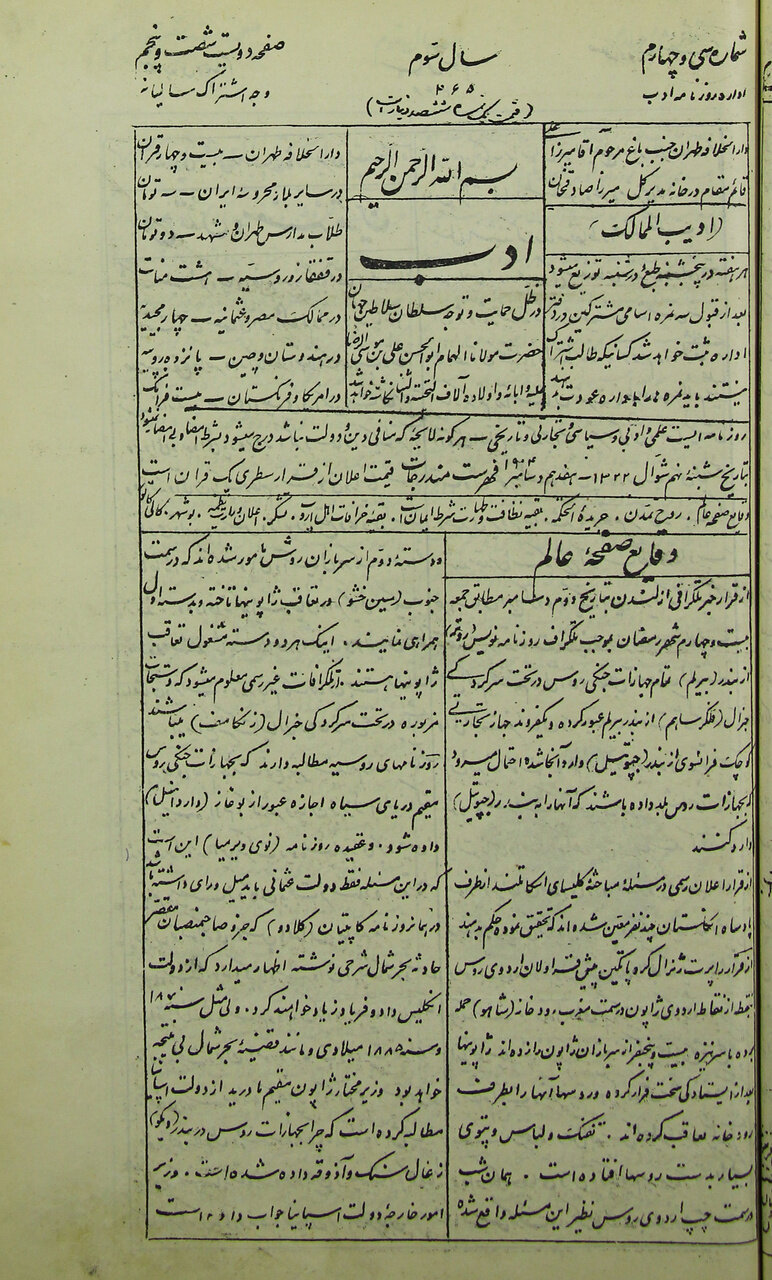 شماره سی و چهارم
سال سوم
صفحه دویست شصت و پنجم
اداره روزنامه ادب
۲۶۵
وجه اشتراک سالیانه
(قیمت یک نمره ششصد دینار است)
دارالخلافه طهران جنب باغ مرحوم آقا میرزا
قائم مقام در خانه مدیر کل میرزا صادقخان
(ادیب الممالک)
هر هفته در پنجشنبه طبع و در شنبه توزیع میشود
بعد از قبول سه نمره اسامی مشترکین در دفتر
اداره ثبت خواهد شد کسانیکه طالب اشتراک
نیستند باید نمره را باداره عودت بدهند
بسم الله الرحمن الرحیم
ادب
در ظل حمایت و توجه سلطان سلاطین جهان
حضرت مولانا الهمام ابوالحسن علی بن موسی الرضا
علیه و ابائه و اولاده آلاف التحیة والثنا نگاشته خواهد شد
دارالخلافه طهران – بیست و چهار قران
در سایر بلاد محروسه ایران – سه تومان
طلاب مدارس طهران و مشهد – دو تومان
در قفقاز و روسیه – هشت منات
در ممالک مصر و عثمانیه – چهار مجیدیه
در هندوستان و چین – پانزده روپیه
در امریکا و فرنگستان – بیست فرانک
روزنامه ایست علمی و ادبی و سیاسی و تجارتی و تاریخی – هر گونه لایحۀ که منافی دین و دولت نباشد درج میشود بشرط امضا و بی امضا نمیشود
بتاریخ شنبه نهم شوال ۱۳۲۲ – هفدهم دسامبر ۱۹۰۴ فهرست مندرجات قیمت اعلان از قرار سطری یک قران است
وقایع صفحه عالم . روح تمدن . جریدة الحکمه . بقیه نظافت و طهارت شرط ایمان است . بقیه خرافات اهل اروپ . تشکر . اعلان
وقایع صفحۀ عالم
از قرار خبر تلگرافی از لندن بتاریخ دوم دسامبر مطابق جمعه
بیست و چهارم شهر رمضان بموجب تلگراف روزنامه نویس (روتر)
از بندر (بیرلم) تمام جهازات جنگی روس در تحت سرکردگی
جنرال (فلکرساهم) از بندر بیرلم عبور کرده و یکفروند جهاز تجارتی
کوچک فرانسوی از بندر (جیبوتیل) وارد آنجا شده احتمال میرود
که بجهازات روس بلد داده باشند که آنها را به بندر (جیبوتیل)
وارد کنند
از قرار اعلان رسمی در مسئله مباحثۀ کلیسای اسکاتلند از طرف
پادشاه انگلستان چند نفر معین شده اند که تحقیق نموده حکم بدهند
از قرار راپرت ژنرال کروپاتکین پیش قراولان اردوی روس
بیکی از نقاط اردوی ژاپون در سمت مغرب رودخانه (شاهو) حمله
برده با سرنیزه بیست و پنجنفر از سربازان ژاپون را زده اند ژاپونیها
بعد از ایستادگی سخت فرار کرده و روسها آنها را بطرف
رودخانه تعاقب کرده اند . تفنگ و لباس و پتوی
بسیار بدست روسها افتاده است . همان شب
در سمت چپ اردوی روس نظیر این مسئله واقع شده
و دستۀ دوم از سربازان روس مامور شده اند که در سمت
جنوب (سین خشو) در تعاقب ژاپونیها تاخته و بدسته اول
همراهی نمایند . اینک هر دو دسته مشغول تعاقب
ژاپونیها هستند . از تلگرافات غیر رسمی معلوم میشود که دستجات
مزبوره در تحت سرکردگی جنرال (رننکامف) میباشند
روزنامهای روسیه مطالبه دارند که بجهازات جنگی روس
مقیم دریای سیاه اجازه عبور از بوغاز (داردانیل)
داده شود . و عقیده روزنامه (نوی ویرمیا) این است
که در این مسئله فقط دولت عثمانی باید میل و رای داشته باشد
در همان روزنامه کاپیتان (کلادو) که جزو صاحبمنصبان مقصر
حادثه بحر شمال شرحی نوشته اظهار میدارد که از دولت
انگلیس داد و فریاد زیاد خواهند کرد . ولی مثل سنه ۱۸۷۸
و سنه ۱۸۸۵ میلادی و مانند قضیۀ بحر شمال بی نتیجه
خواهد بود وزیر مختار ژاپون مقیم مادرید از دولت اسپانیا
مطالبه کرده است که چرا بجهازات روس در بندر (ویگو)
زغال سنگ و آذوقه داده شده است . وزیر
امور خارجۀ دولت اسپانیا جواب داده است